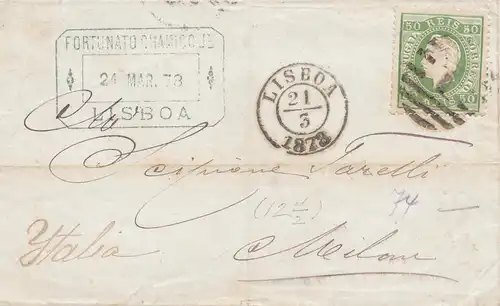 FORTUNATO CHAMIÇO JR
24 MAR. 73
LISBOA
LISBOA
21
3
1873
50 REIS 50
50 50
Scipione Tarelli
(12 1/2)
74 —
Italia
Milan